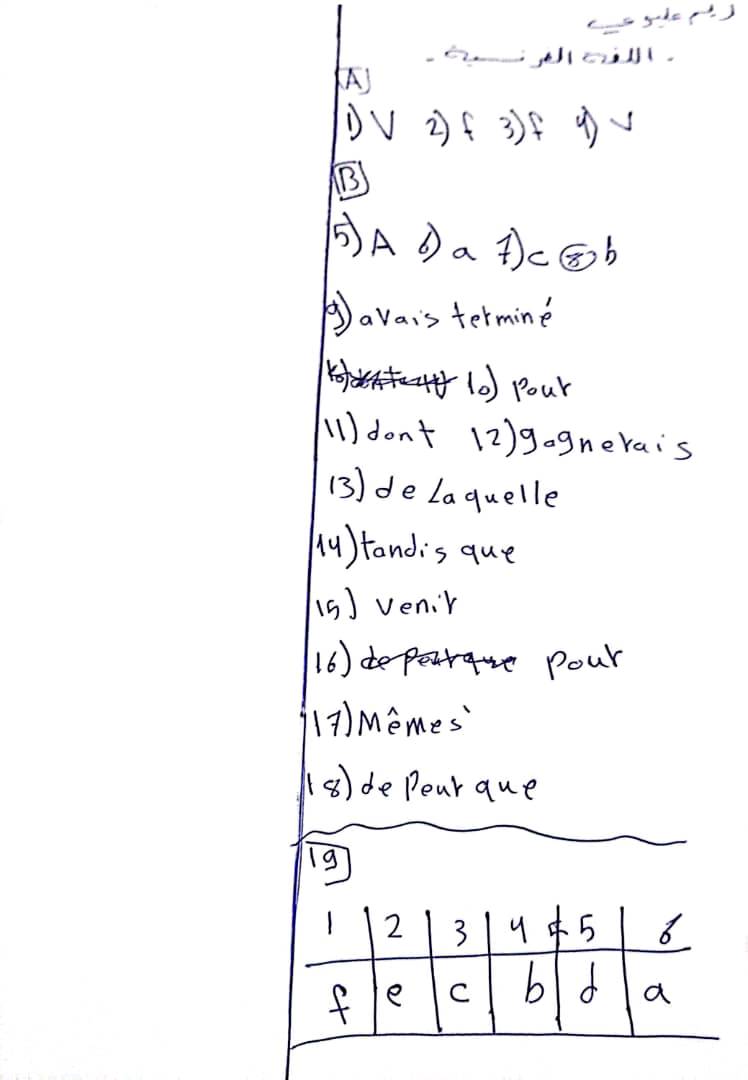 ريم عليوي
اللغة الفرنسية.
A
1) V 2) f 3) f 4) V
B
5) A 6) a 7) c 8) b
9) avais terminé
10) pour
11) dont 12) gagnerais
13) de Laquelle
14) tandis que
15) venir
16) de peur que pour
17) Mêmes
18) de Peur que
19
1 2 3 4 5 6
f e c b d a